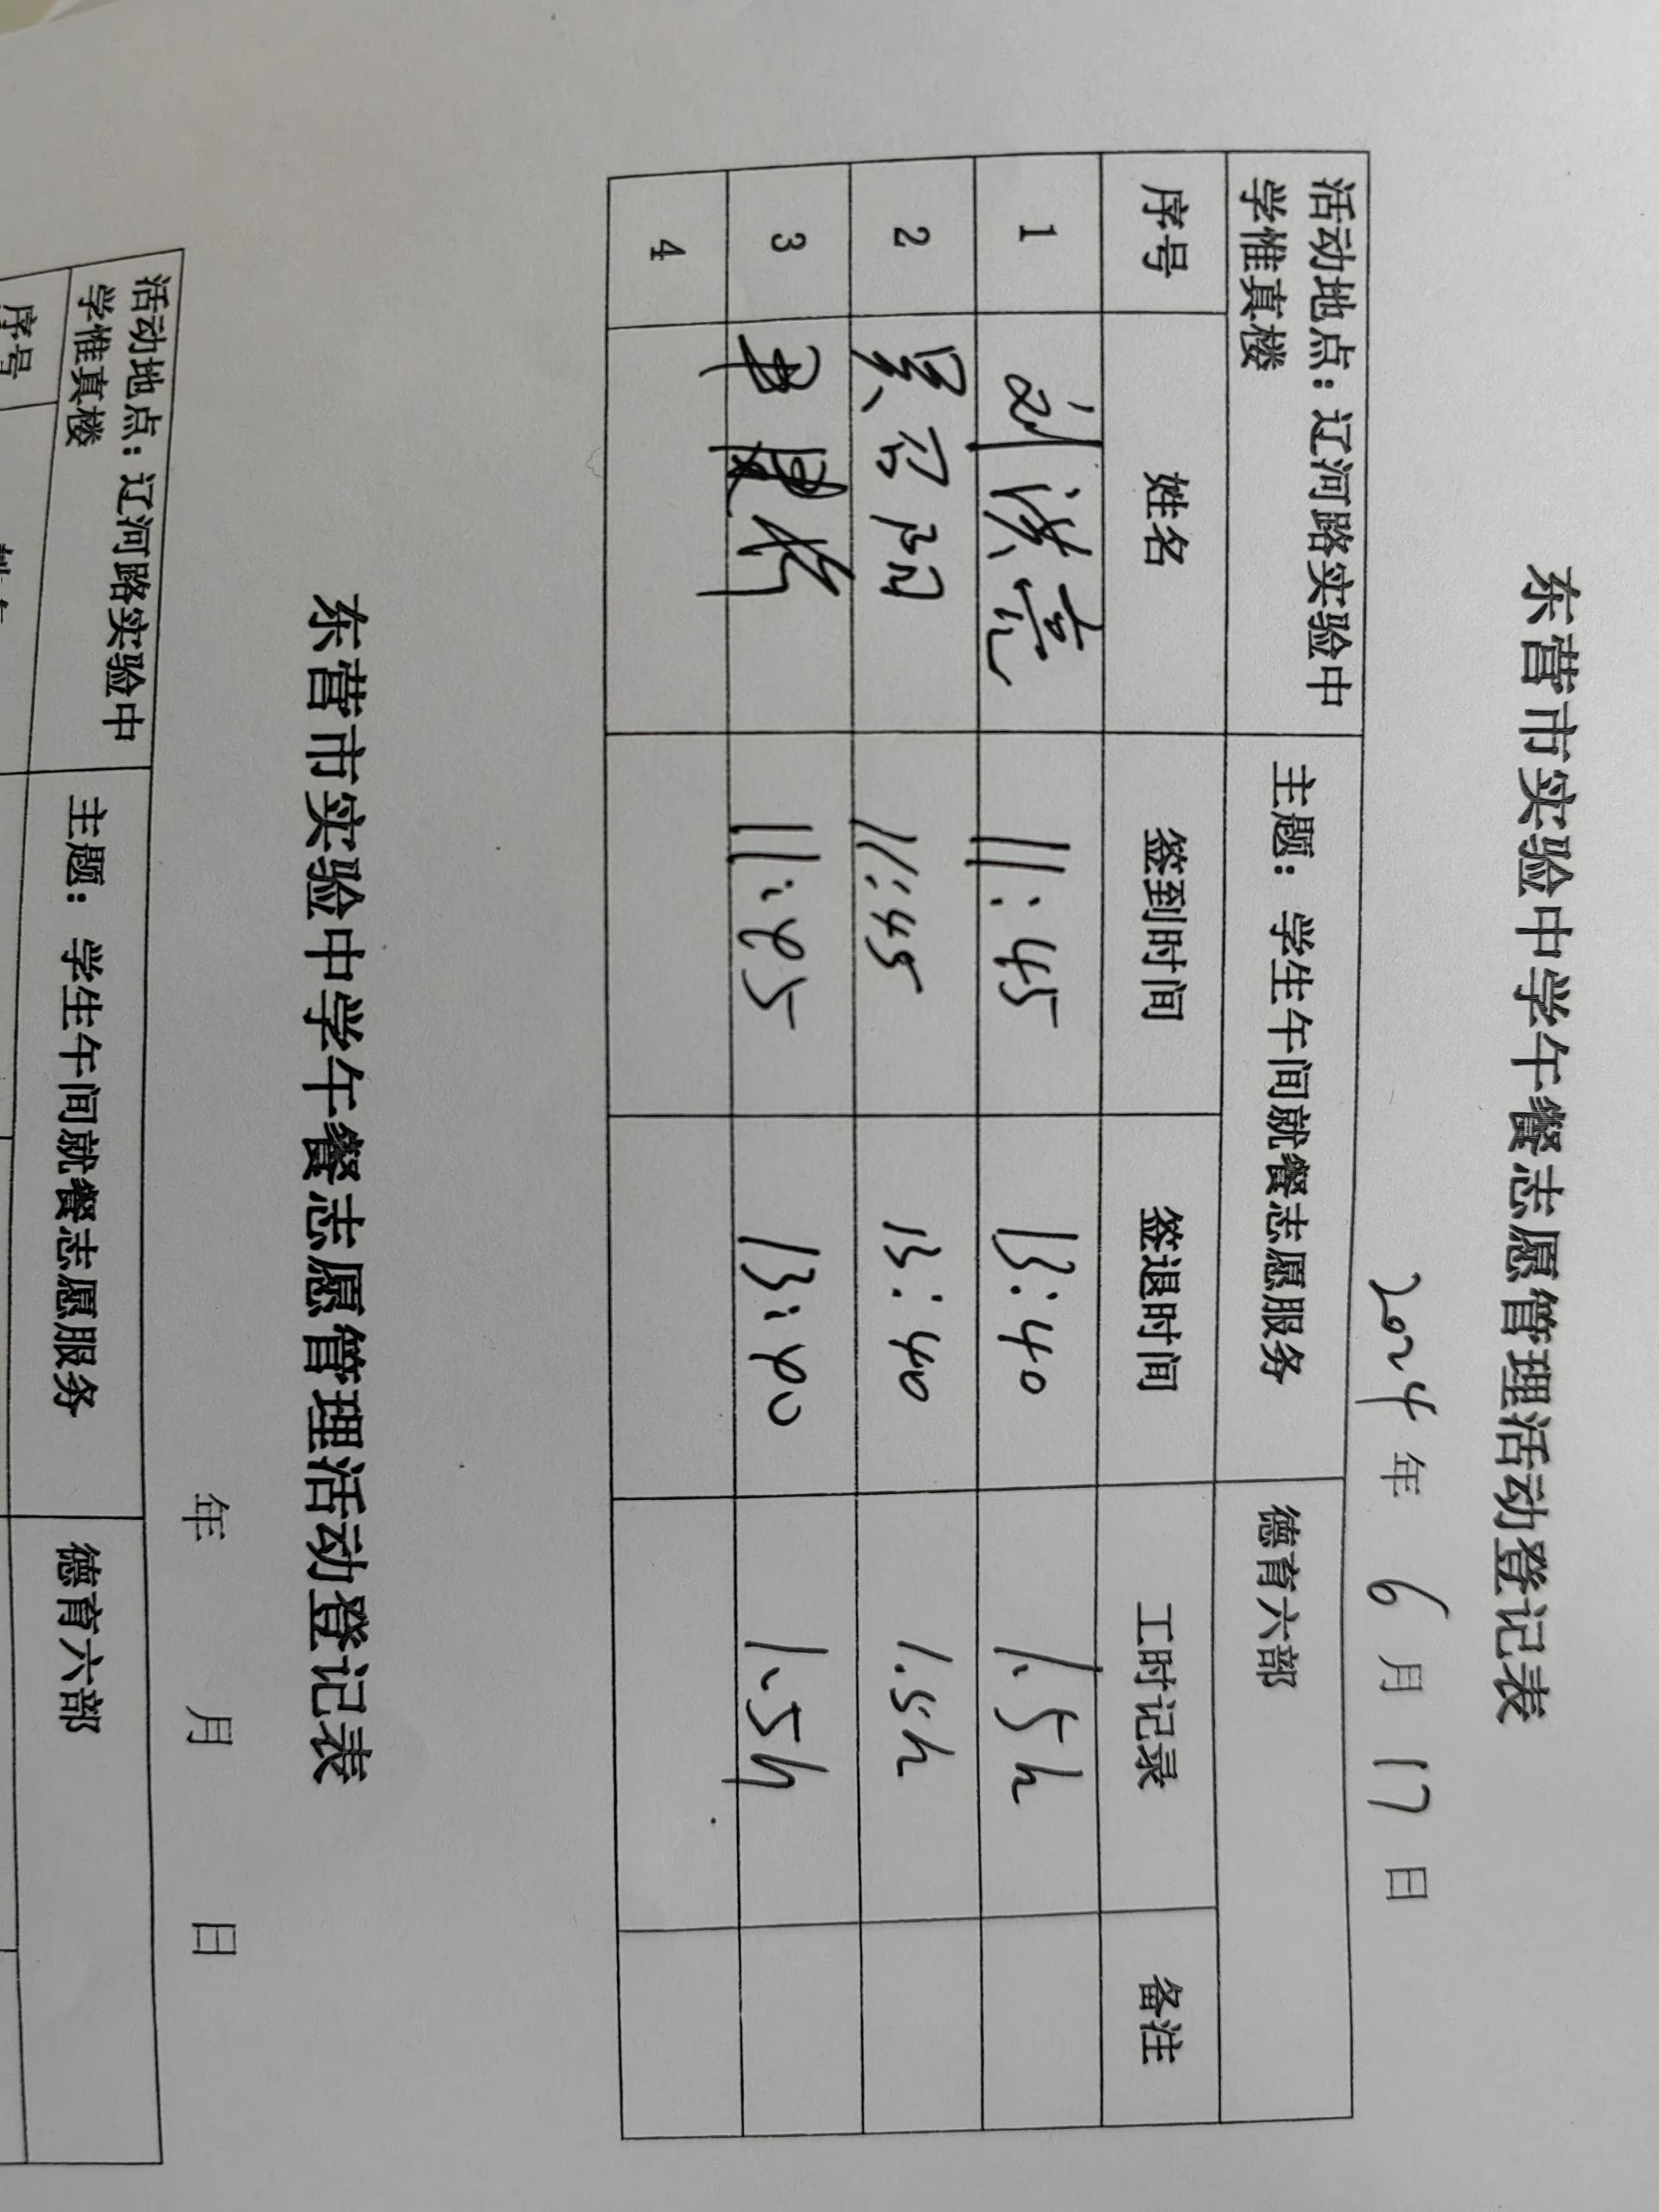 东营市实验中学午餐志愿管理活动登记表
2024年 6月 17日
活动地点：辽河路实验中 主题：学生午间就餐志愿服务 德育六部
学惟真楼
序号 姓名 签到时间 签退时间 工时记录 备注
1 刘洪亮 11:45 13:40 1.5h
2 吴召阳 11:45 13:40 1.5h
3 11:45 13:40 1.5h
4
东营市实验中学午餐志愿管理活动登记表
年 月 日
活动地点：辽河路实验中 主题：学生午间就餐志愿服务 德育六部
学惟真楼
序号